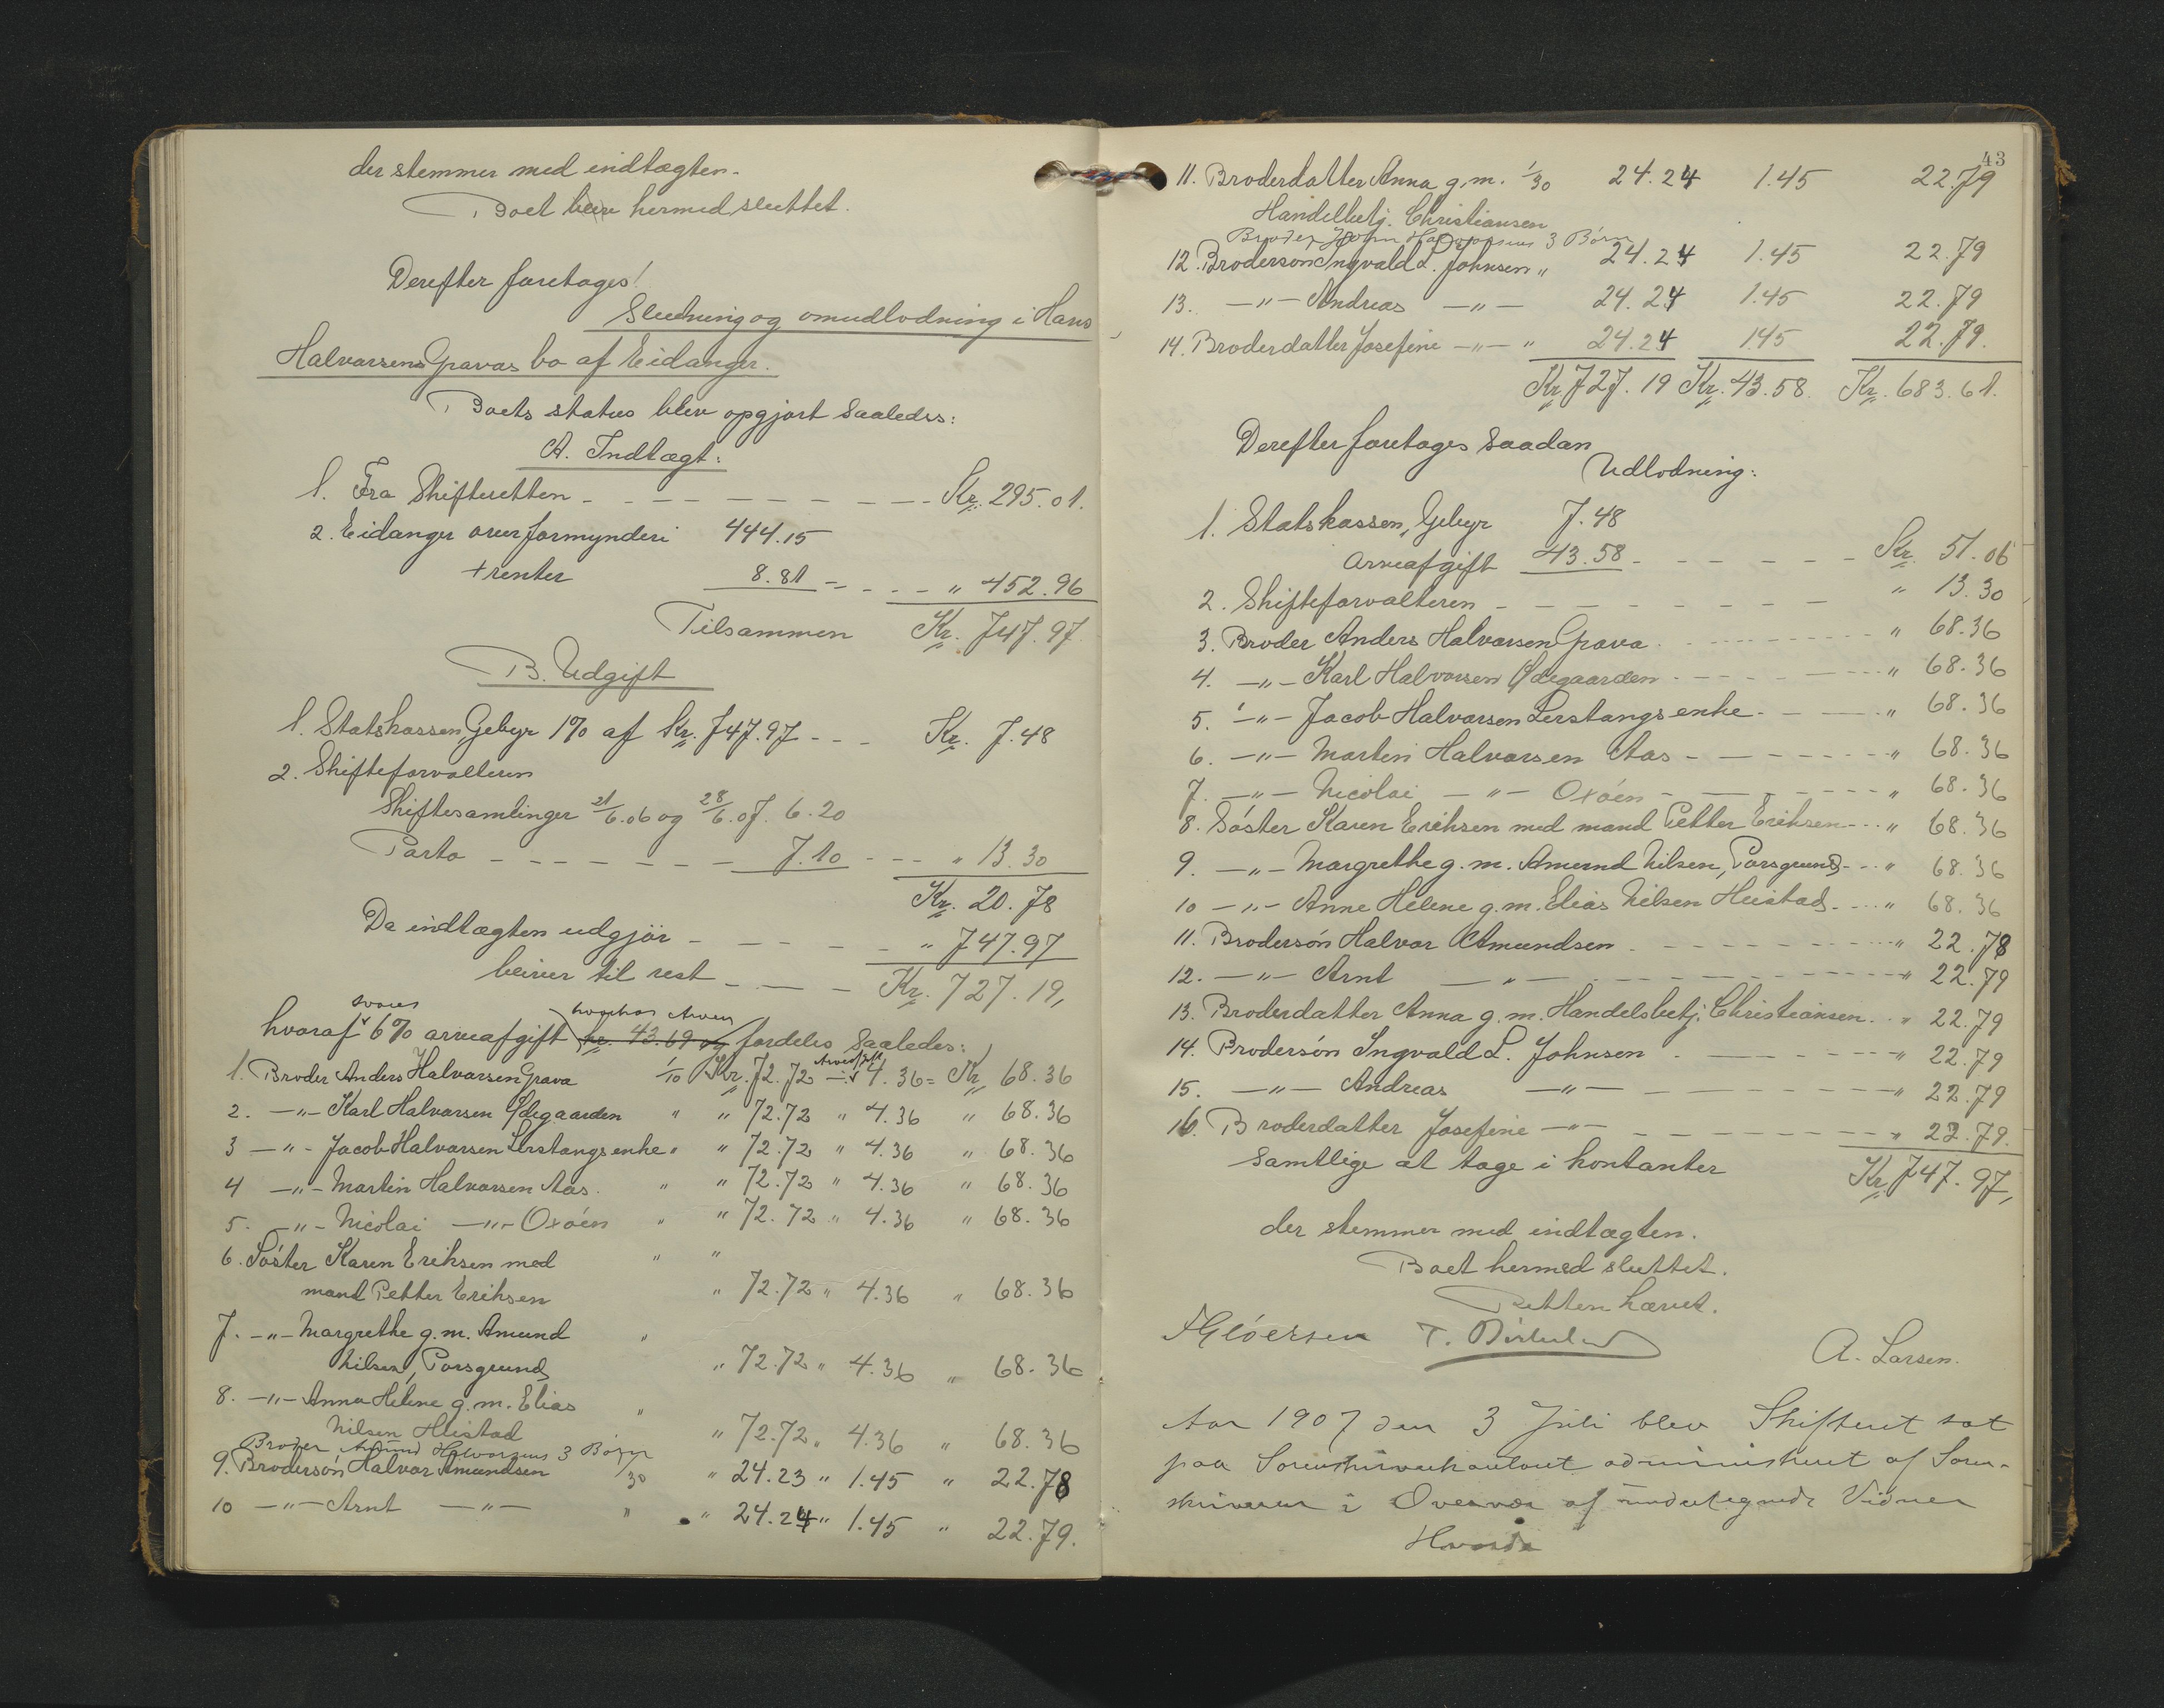 der stemmer med indtægten.
Boet hermed sluttet.
Derefter foretages!
Slutning og omudlodning i Hans
Halvorsens Gravas bo af Eidanger.
Boets status blev opgjort saaledes:
A. Indtægt:
1. Fra Skifteretten - - - - - - - - - Kr. 295.01.
2. Eidanger overformynderi 444.15
+ renter 8.81 - - - - " 452.96
Tilsammen Kr. 747.97
B. Udgift
1. Statskassen, Gebyr 1% af Kr. 747.97 - - - Kr. 7.48
2. Skifteforvalteren
Skiftesamlinger 21/6.06 og 28/6.07. 6.20
Porto - - - - - - - 7.10 - - - " 13.30
Kr. 20.78
Da indtægten udgjør - - - - - " 747.97
bliver til rest - - - - Kr. 727.19,
svares hvorhos Arven
hvoraf 6% arveafgift kr. 43.69 og fordeles saaledes:
Arveafgift
1. Broder Anders Halvorsen Grava 1/10 Kr. 72.72 - 4.36 = Kr. 68.36
2. -"- Karl Halvorsen Ødegaarden " " 72.72 " 4.36 " 68.36
3 -"- Jacob Halvorsen Lerstangs enke " " 72.72 " 4.36 " 68.36
4 -"- Martin Halvorsen Aas. " " 72.72 " 4.36 " 68.36
5. -"- Nicolai -"- Oxöen " " 72.72 " 4.36 " 68.36
6. Söster Karen Eriksen med " "
mand Petter Eriksen " 72.72 " 4.36 " 68.36
7. -"- Margrethe g.m. Amund "
Nilsen, Porsgrund " 72.72 " 4.36 " 68.36
8. -"- Anna Helene g.m. Elias "
Nilsen Heistad " 72.72 " 4.36 " 68.36
Broder Amund Halvorsens 3 Börn
9. Brodersön Halvor Amundsen 1/30 " 24.23 " 1.45 " 22.78
10 -"- Arnt -"- " " 24.24 " 1.45 " 22.79.
43
11. Broderdatter Anna g.m. 1/30 24.24 1.45 22.79
Handelbetj. Christiansen
Broder John Halvorsens 3 Börn
12. Brodersön Ingvald L. Johnsen " 24.24 1.45 22.79
13. -"- Andreas -"- 24.24 1.45 22.79
14. Broderdatter Josefine -"- " 24.24 1.45 22.79.
Kr. 727.19 Kr. 43.58. Kr. 683.61.
Derefter foretages saadan
Udlodning:
1. Statskassen, Gebyr 7.48
Arveafgift 43.58 - - - - - - Kr. 51.06
2. Skifteforvalteren - - - - - - - - " 13.30
3. Broder Anders Halvorsen Grava - - - - " 68.36
4. -"- Karl Halvorsen Ødegaarden - - - - " 68.36
5. -"- Jacob Halvorsen Lerstangs enke - - - " 68.36
6. -"- Martin Halvorsen Aas - - - - - " 68.36
7. -"- Nicolai -"- Oxöen - - - - - " 68.36
8. Söster Karen Eriksen med mand Petter Eriksen - - - " 68.36
9. -"- Margrethe g.m. Amund Nilsen, Porsgrund - - - " 68.36
10 -"- Anne Helene g.m. Elias Nilsen Heistad - - - " 68.36
11. Brodersön Halvor Amundsen - - - - - - " 22.78
12. -"- Arnt -"- - - - - - - " 22.79
13. Broderdatter Anna g.m. Handelsbetj. Christiansen. . " 22.79
14. Brodersön Ingvald L. Johnsen - - - - " 22.79
15. -"- Andreas -"- - - - - " 22.79
16. Broderdatter Josefine -"- - - - - - " 22.79.
Samtlige at tage i kontanter Kr. 747.97,
der stemmer med indtægten.
Boet hermed sluttet.
Retten hævet.
A. Larsen.
Aar 1907 den 3 Juli blev Skifteret sat
paa Sorenskriverkontoret administreret af Soren-
skriveren i Overvær af undertegnede Vidner
Hvorda